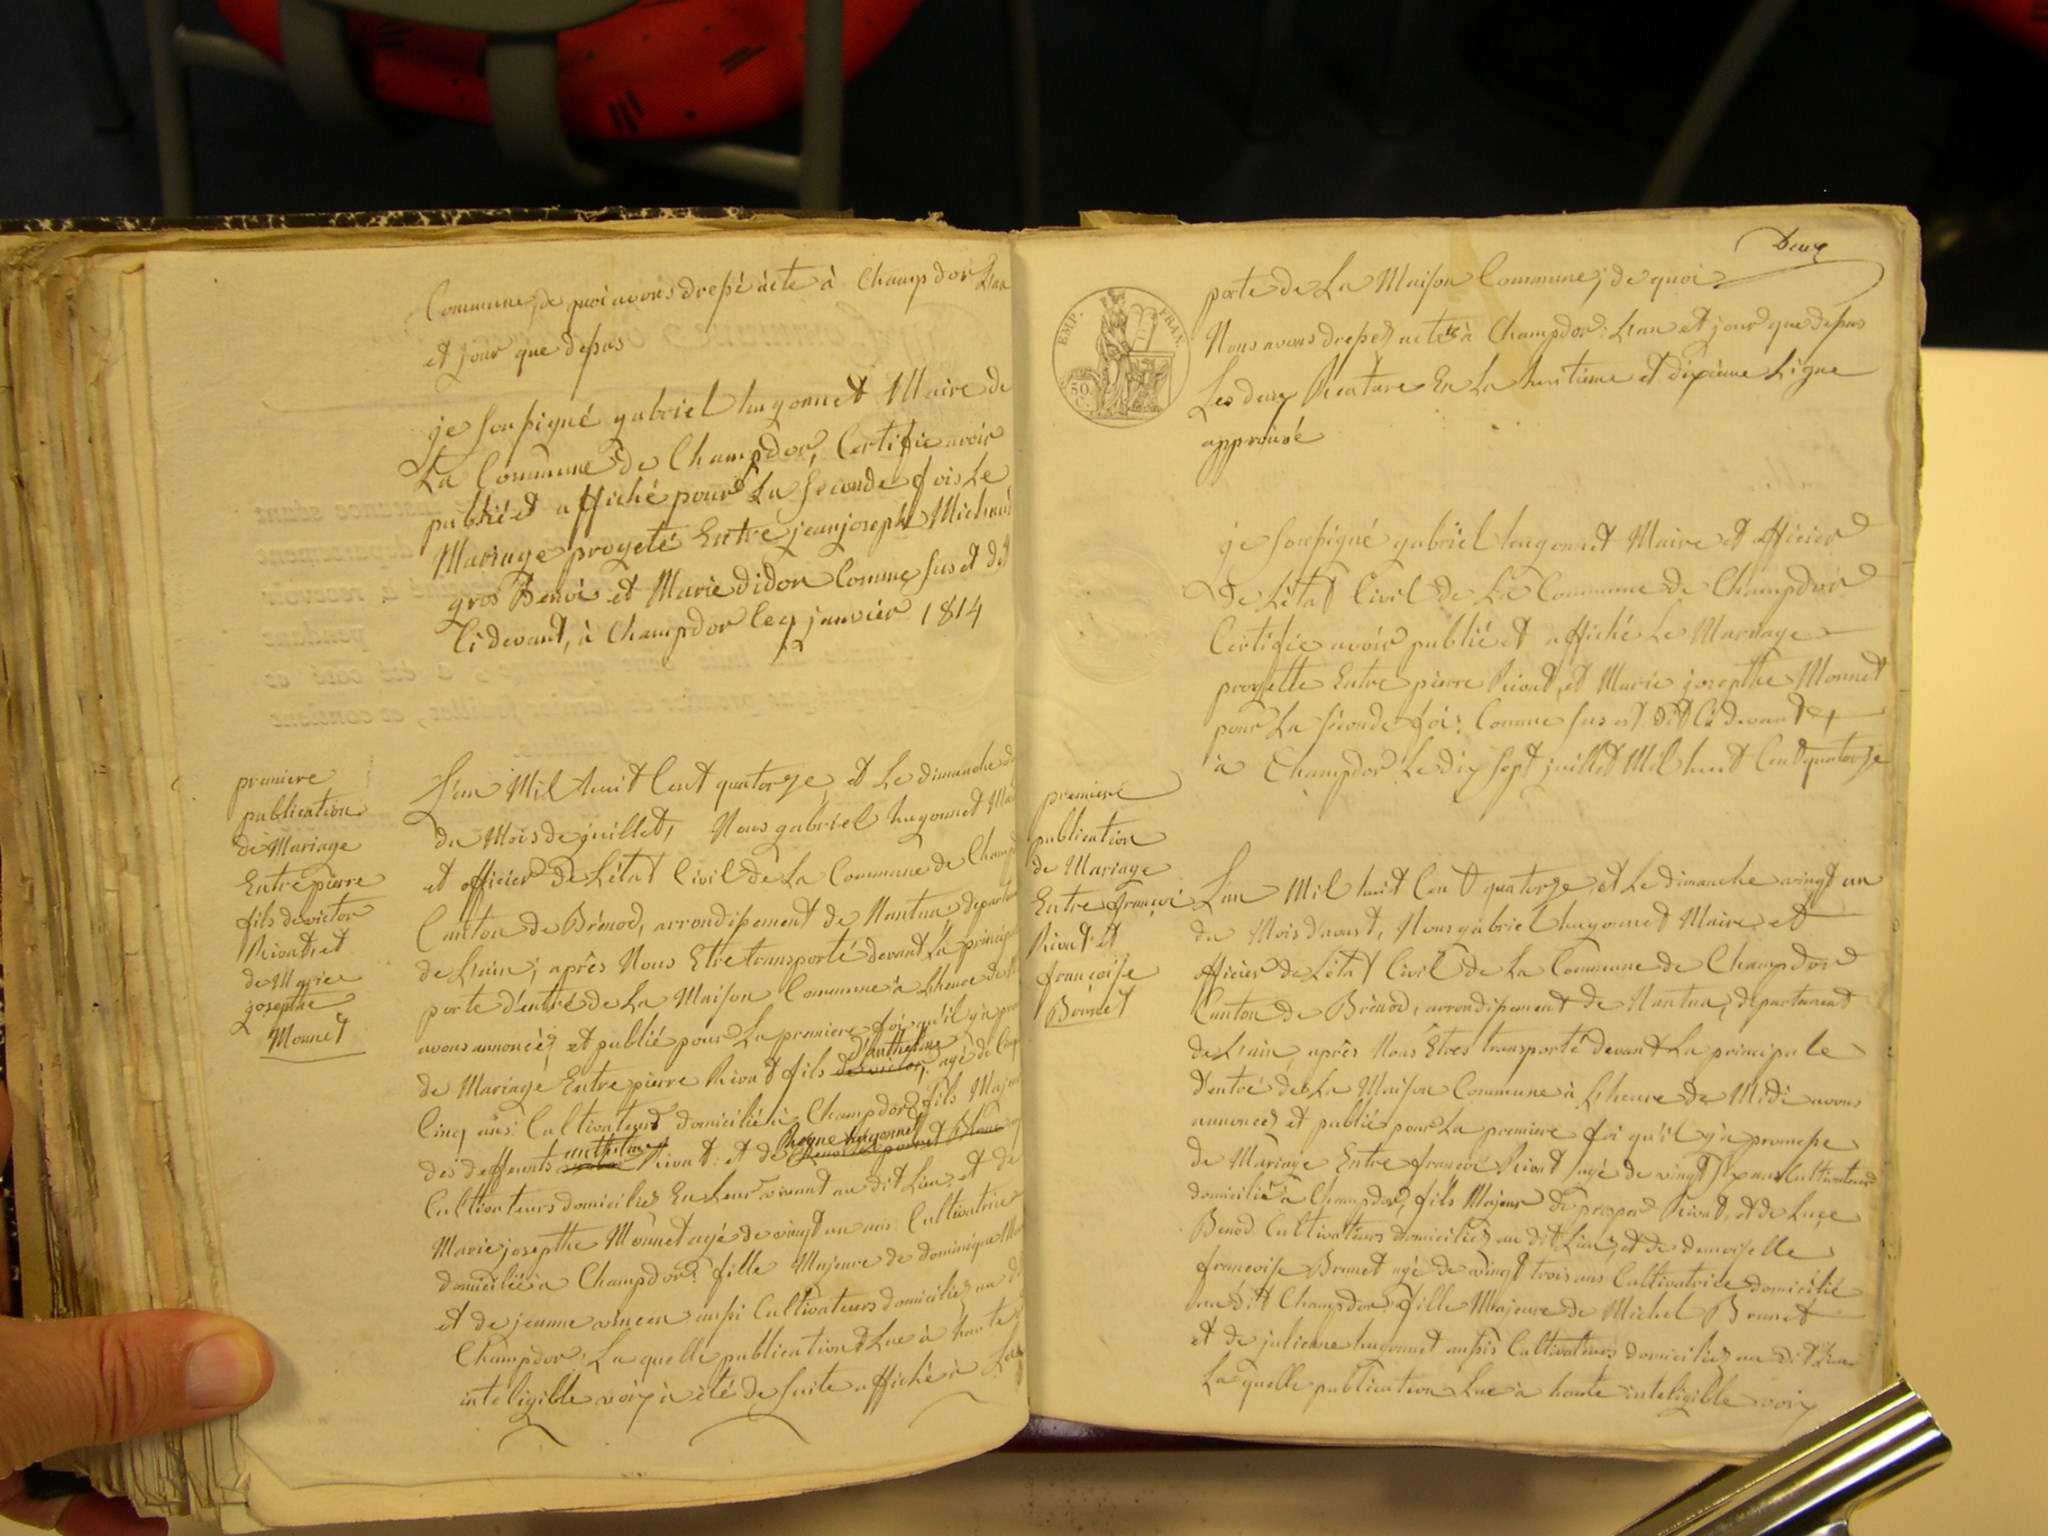 Commune, de quoi avons dressé acte à Champdor L'an
et jour que dessus
je soussigné gabriel hugonnet Maire de
La Commune de Champdor, Certifie avoir
publié et affiché pour La seconde fois Le
Mariage progeté Entre jean joseph Michaud
gros Benoi et Marie didon Comme sus et dit
Ci devant, à Champdor le 9 janvier 1814
premiere
publication
de Mariage
Entre pierre
fils de victor
Rivat, et
de Marie
josephte
Monnet
L'an Mil huit Cent quatorze, et Le dimanche
du Mois de juillet, Nous gabriel hugonnet
et officier de L'état Civil de La Commune de
Canton de Brénod, arrondissement de Nantua
de L'ain; après Nous Etre transporté devant La
porte d'entré de La Maison Commune à L'heure de
avons annoncéz et publié pour La premiere foi qu'il y'a
d'anthelme
de Mariage Entre pierre Rivat fils de victor, agé de
Cinq ans Cultivateur domicilié à Champdor, fils
anthelme Reyne hugonnet
des deffunts Rivat et de
Cultivateurs domiciliéz En Leur vivant au dit Lieu, et de
Marie josephte Monnet agé de vingt un ans Cultivatrice
domiciliée à Champdor, fille Majeure de dominique
et de jeanne vincen aussi Cultivateurs domiciliéz au
Champdor; La quelle publication Lue à haute
inteligible voix à été de suite affiché à La
Deux
porte de La Maison Commune, de quoi
EMP. FRAN.
50
Nous avons dresséz acte à Champdor L'an et jour que dessus
Les deux Reature En La huitieme et dixieme Ligne
approuvé
je soussigné gabriel hugonnet Maire et officier
De L'état Civil de La Commune de Champdor
Certifie avoir publié et affiché Le Mariage
progetté Entre pierre Rivat, et Marie josephte Monnet
pour La séconde foi; Comme sus est Dit Ci devant
à Champdor Le dix sept juillet Mil huit Cent quatorze
premiere
publication
de Mariage
Entre françoi
Rivat et
françoise
Brunet
L'an Mil huit Cent quatorze, et Le dimanche vingt un
du Mois d'aoust, Nous gabriel hugonnet Maire et
officier de L'état Civil de La Commune de Champdor
Canton de Brénod, arrondissement de Nantua, departement
de L'ain, après Nous Etres transporté devant La principale
d'entré de La Maison Commune à L'heure de Midi avons
annoncéz et publié pour La premiere foi qu'il y'a promesse
de Mariage Entre françoi Rivat agé de vingt six ans Cultivateur
domicilié à Champdor, fils Majeur de prosper Rivat, et de Luce
Benod Cultivateurs domiciliéz au dit Lieu, et de demoiselle
françoise Brunet agé de vingt trois ans Cultivatrice domicilié
au dit Champdor, fille Majeure de Michel Brunet
et de julienne hugonnet aussi Cultivateurs domiciliéz au dit Lieu
La quelle publication Lue à haute inteligible voix